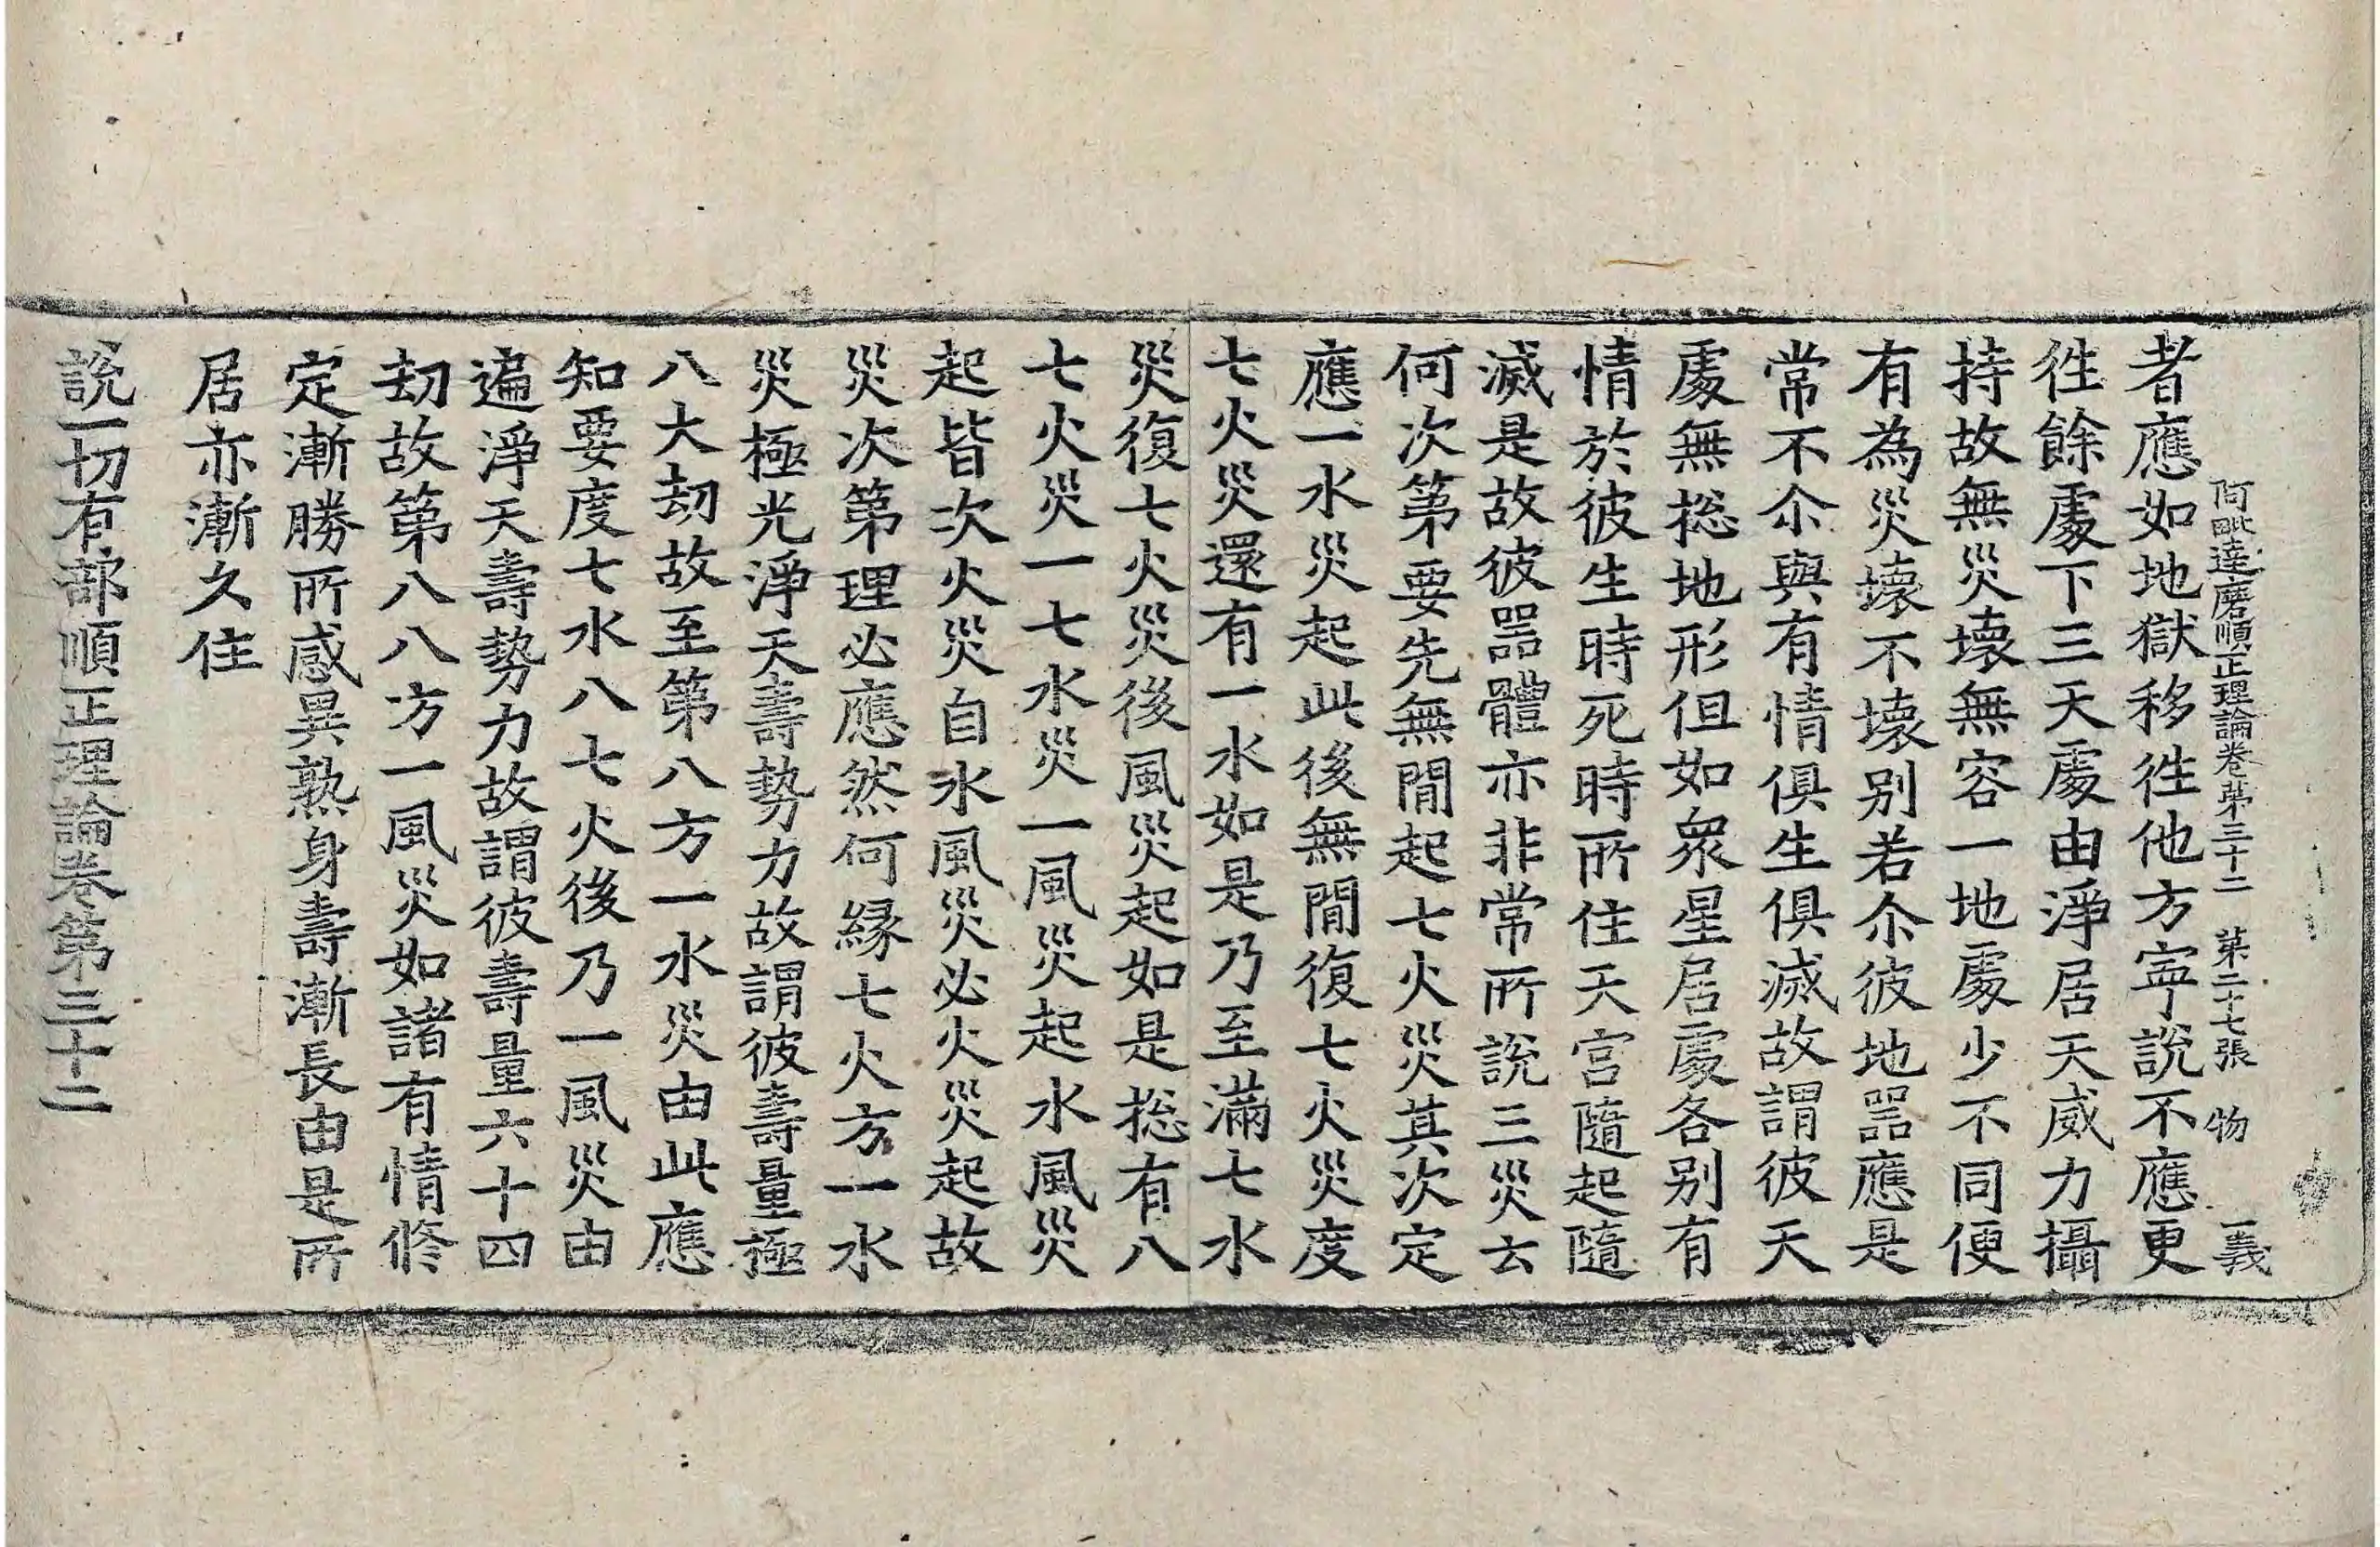 阿毗達磨順正理論卷第三十二 苐二十七張 物 一義
者應如地獄移徃他方寧說不應更
徃餘處下三天處由淨居天威力攝
持故無災壞無容一地處少不同便
有為災壞不壞別若尒彼地噐應是
常不尒與有情俱生俱滅故謂彼天
處無捴地形但如眾星居處各別有
情於彼生時死時所住天宮隨起隨
滅是故彼噐體亦非常所說三災云
何次第要先無間起七火災其次定
應一水災起此後無間復七火災度
七火災還有一水如是乃至滿七水
災復七火災後風災起如是捴有八
七火災一七水災一風災起水風災
起皆次火災自水風災必火災起故
災次第理必應然何緣七火方一水
災極光淨天壽勢力故謂彼壽量極
八大劫故至第八方一水災由此應
知要度七水八七火後乃一風災由
遍淨天壽勢力故謂彼壽量六十四
劫故第八八方一風災如諸有情修
定漸勝所感異熟身壽漸長由是所
居亦漸久住
說一切有部順正理論卷第三十二